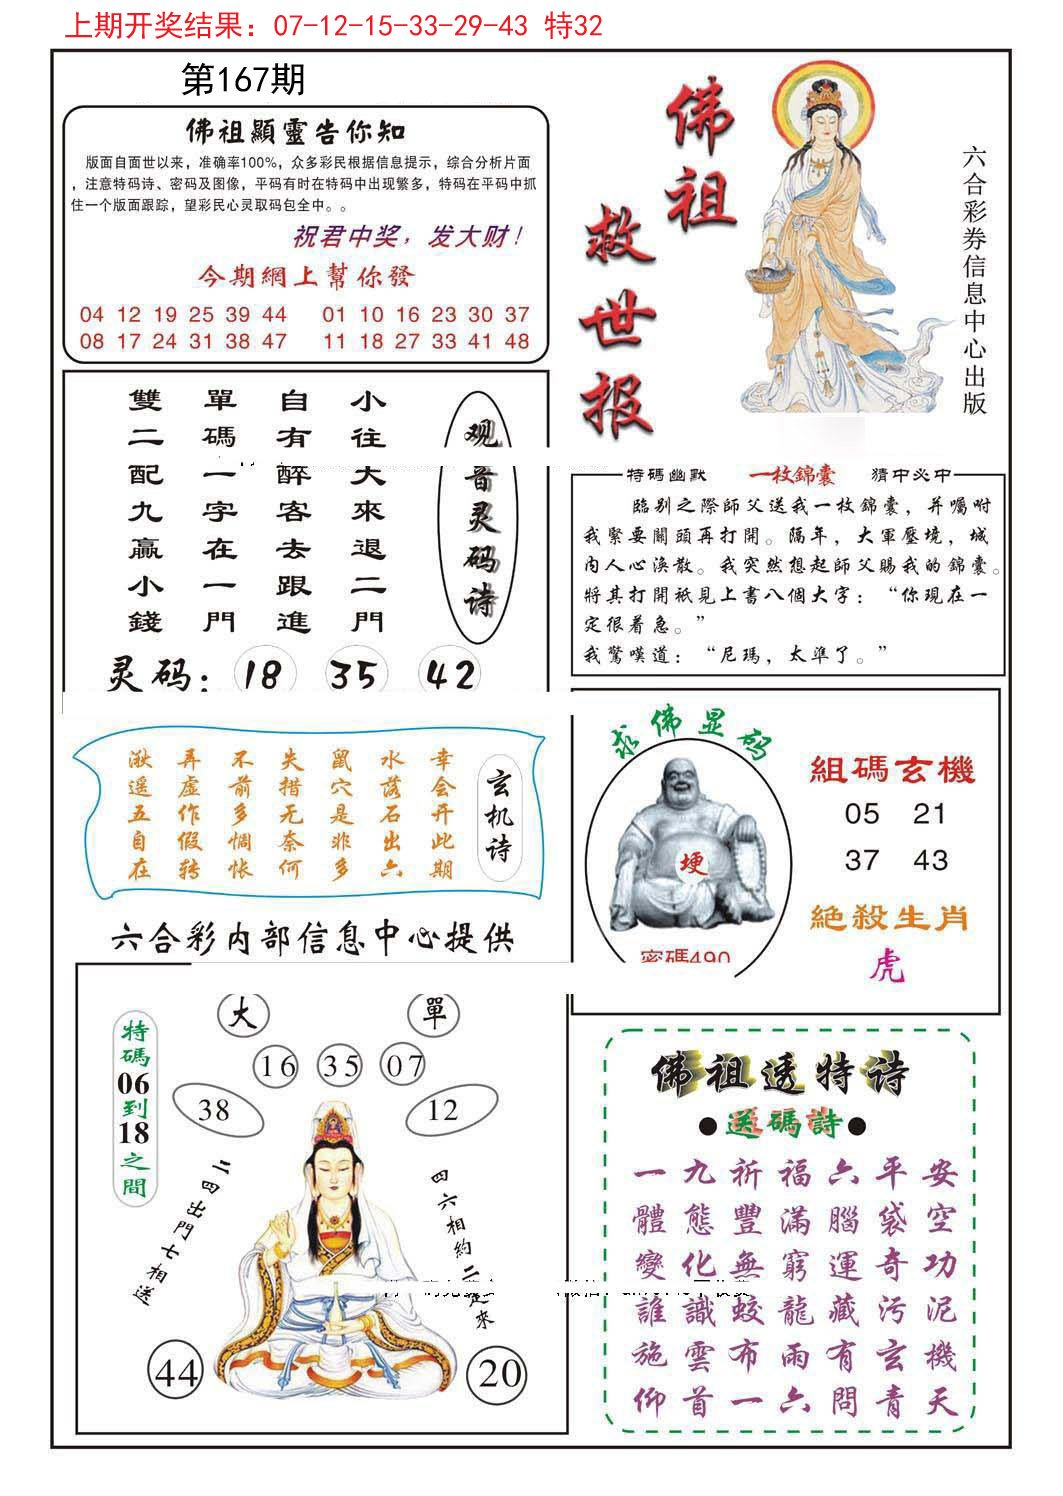 上期开奖结果：07-12-15-33-29-43 特32
第167期
佛祖顯靈告你知
版面自面世以来，准确率100%，众多彩民根据信息提示，综合分析片面
，注意特码诗、密码及图像，平码有时在特码中出现繁多，特码在平码中抓
住一个版面跟踪，望彩民心灵取码包全中。。
祝君中奖，发大财！
今期網上幫你發
04 12 19 25 39 44 01 10 16 23 30 37
08 17 24 31 38 47 11 18 27 33 41 48
佛祖
救世报
六合彩券信息中心出版
观音灵码诗
小往大來退二門
自有醉客去跟進
單碼一字在一門
雙二配九贏小錢
灵码：18 35 42
特碼幽默 一枚錦囊 猜中必中
臨别之際師父送我一枚錦囊，并囑咐
我緊要關頭再打開。隔年，大軍壓境，城
内人心渙散。我突然想起師父賜我的錦囊。
將其打開祇見上書八個大字：“你現在一
定很着急。”
我驚嘆道：“尼瑪，太準了。”
玄机诗
幸会开此期
水落石出六
鼠穴是非多
失措无奈何
不前多惆怅
再虚作假转
湫遥五自在
求佛显码
埂
密碼490
組碼玄機
05 21
37 43
絶殺生肖
虎
六合彩内部信息中心提供
大 單
16 35 07
38 12
特碼06到18之間
二四出門七相送
四六相約二起來
44 20
佛祖透特诗
●送碼詩●
一九祈福六平安
體態豐滿腦袋空
變化無窮運奇功
誰識蛟龍藏污泥
施雲布雨有玄機
仰首一六問青天